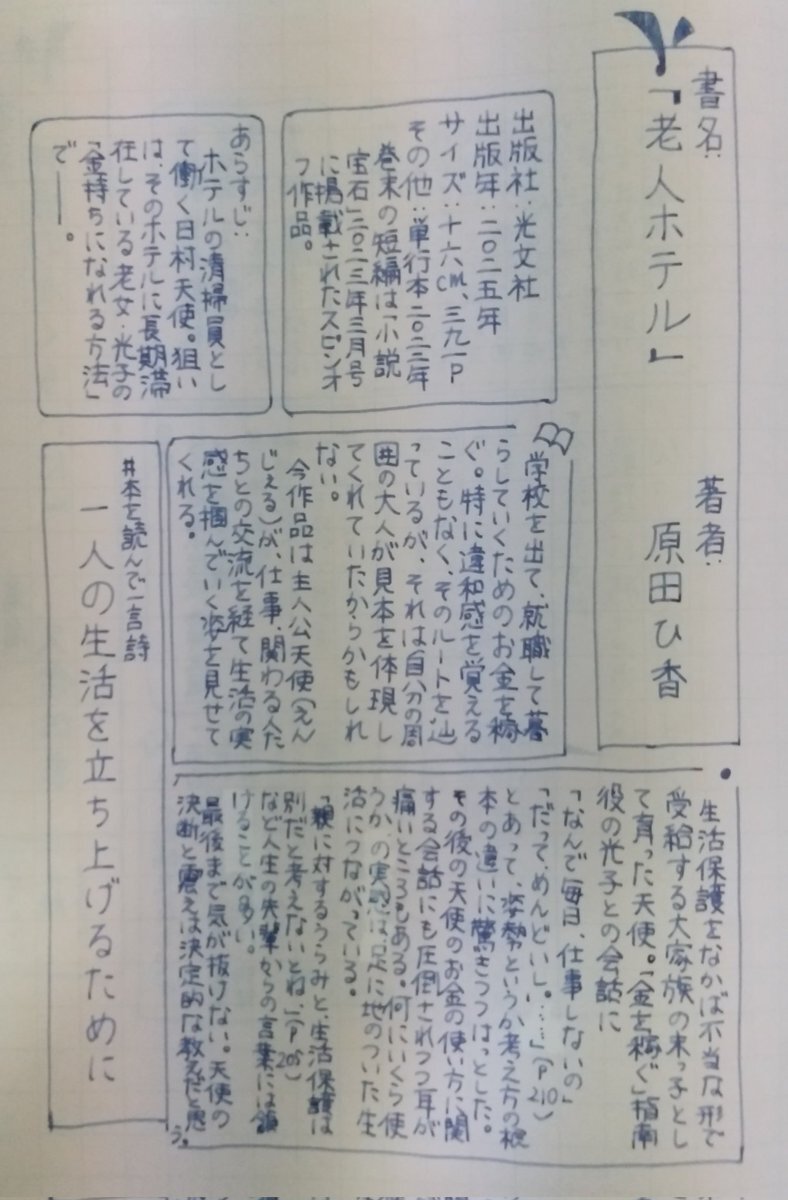 書名:
「老人ホテル」
著者:
原田ひ香
出版社:光文社
出版年:二〇二五年
サイズ:十六cm、三九一P
その他:単行本二〇二二年
巻末の短編は「小説
宝石」二〇二三年三月号
に掲載されたスピンオ
フ作品。
あらすじ:
ホテルの清掃員とし
て働く日村天使。狙い
は、そのホテルに長期滞
在している老女・光子の
「金持ちになれる方法」
で――。
学校を出て、就職して暮
らしていくためのお金を稼
ぐ。特に違和感を覚える
こともなく、そのルートを辿
っているが、それは自分の周
囲の大人が見本を体現し
てくれていたからかもしれ
ない。
今作品は主人公天使(えん
じぇる)が、仕事、関わる人た
ちとの交流を経て生活の実
感を掴んでいく姿を見せて
くれる。
生活保護をなかば不当な形で
受給する大家族の末っ子とし
て育った天使。「金を稼ぐ」指南
役の光子との会話に
「なんで毎日、仕事しないの」
「だって、めんどいし。……」(P210)
とあって、姿勢というか考え方の根
本の違いに驚きつつはっとした。
その後の天使のお金の使い方に関
する会話にも圧倒されつつ耳が
痛いところもある。何にいくら使
うか、の実感は足に地のついた生
活につながっている。
「親に対するうらみと、生活保護は
別だと考えないとね」(P205)
など人生の先輩からの言葉には頷
けることが多い。
最後まで気が抜けない。天使の
決断と震えは決定的な教えだと思
う。
#本を読んで一言詩
一人の生活を立ち上げるために